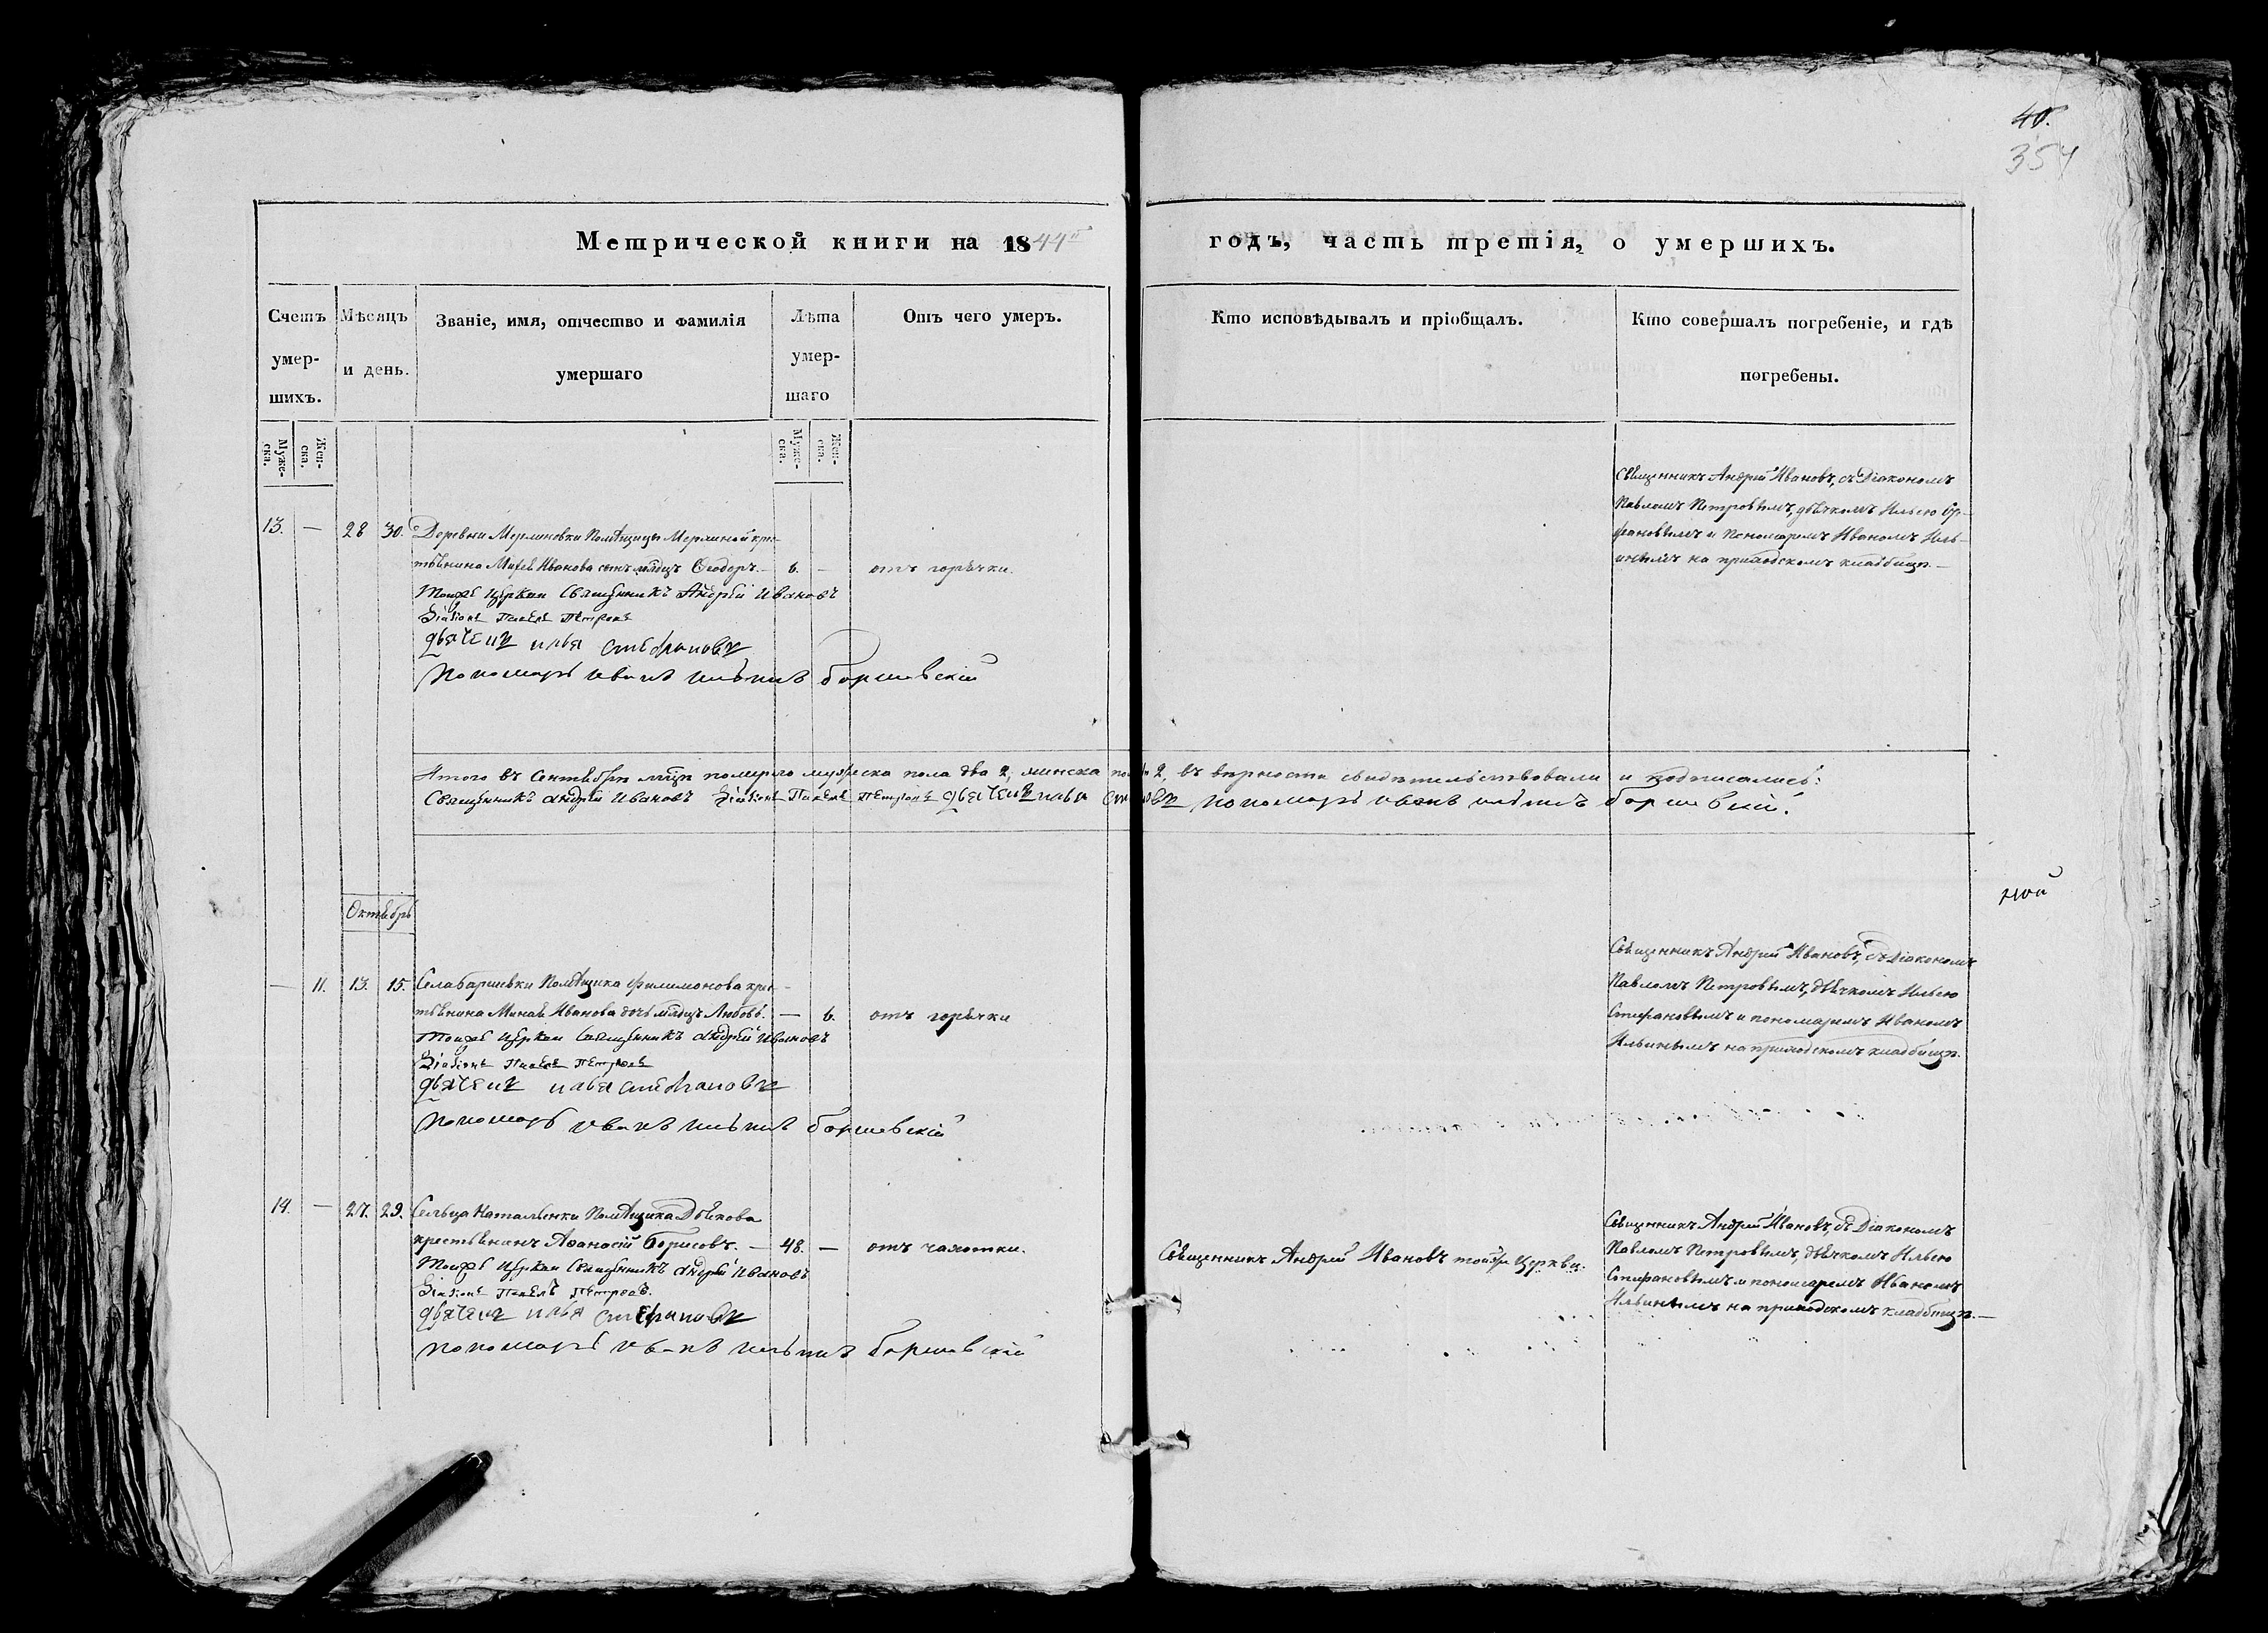 40.
354
Метрической книги на 1844й годъ, часть третія, о умершихъ.
Счетъ умер-шихъ.
Мѣсяцъ и день.
Званіе, имя, отчество и фамилія умершаго
Лѣта умер-шаго
Отъ чего умеръ.
Кто исповѣдывалъ и пріобщалъ.
Кто совершалъ погребеніе, и гдѣ погребены.
Муже-ска.
Жен-ска.
Муже-ска.
Жен-ска.
13. — 28 30. Деревни Мерлиновки Помѣщицы Мерлиной кре-
стьянина Иванова сынъ младнцъ Ѳеодоръ. — 6. — отъ горячки.
Тояже церкви Священникъ Андрей Ивановъ
Діаконъ Павелъ Петровъ
дьячекъ илья стефановъ
пономарь иванъ ильинъ боршевскій
Священникъ Андрей Ивановъ, съ Діакономъ
Павломъ Петровымъ, дьячкомъ Ильею Сте-
фановымъ и Пономаремъ Иваномъ Иль-
инымъ на приходскомъ кладбищѣ. —
Итого въ Сентябрѣ мцѣ померло мужеска пола два 2, женска 2, въ вѣрности свидѣтельствовали и подписались:
Священникъ андрей Ивановъ Діаконъ Павелъ Петровъ дьячекъ илья пономарь иванъ ильинъ боршевскій.
Октябрь
ной
— 11. 13. 15. Села Помѣщика Филимонова кре-
стьянина Миная Иванова дочь младнцъ Любовь. — 6. отъ горячки
Тояже церкви священникъ андрей Ивановъ
Діаконъ Павелъ Петровъ
дьячекъ илья стефановъ
пономарь иванъ ильинъ боршевскій
Священникъ Андрей Ивановъ, съ Діакономъ
Павломъ Петровымъ, дьячкомъ Ильею
Стефановымъ и пономаремъ Иваномъ
Ильинымъ на приходскомъ кладбищѣ.
14. — 27. 29. Сельца Натальинки Помѣщика
крестьянинъ Аѳанасій Борисовъ. — 48. — отъ чахотки.
Тояже церкви Священникъ андрей Ивановъ
Діаконъ Павелъ Петровъ.
дьячекъ илья стефановъ
пономарь иванъ ильинъ боршевскій
Священникъ Андрей Ивановъ тойже Церкви.
Священникъ Андрей Ивановъ, съ Діакономъ
Павломъ Петровымъ, дьячкомъ Ильею
Стефановымъ и пономаремъ Иваномъ
Ильинымъ на приходскомъ кладбищѣ. —